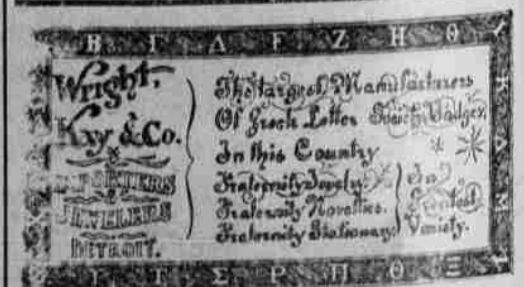 B Γ Δ F Z H Θ I
Wright,
Kay & Co.
IMPORTERS
&
JEWELERS
DETROIT.
The largest Manufacturers
Of Greek Letter Society Badges,
In this Country
Fraternity Jewelry
Fraternity Novelties.
Fraternity Stationary
In
Greatest
Variety.
K Λ M
T Σ P Π O Ξ